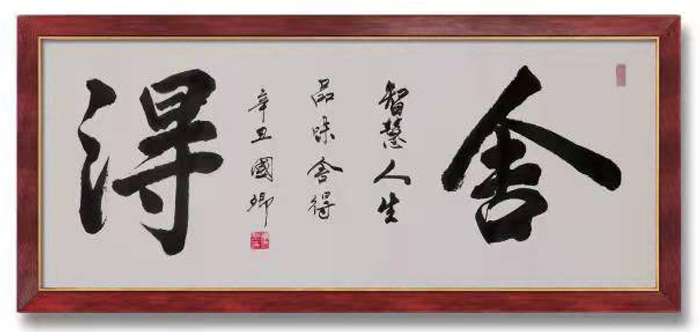 舍
智慧人生
品味舍得
辛丑國卿
得